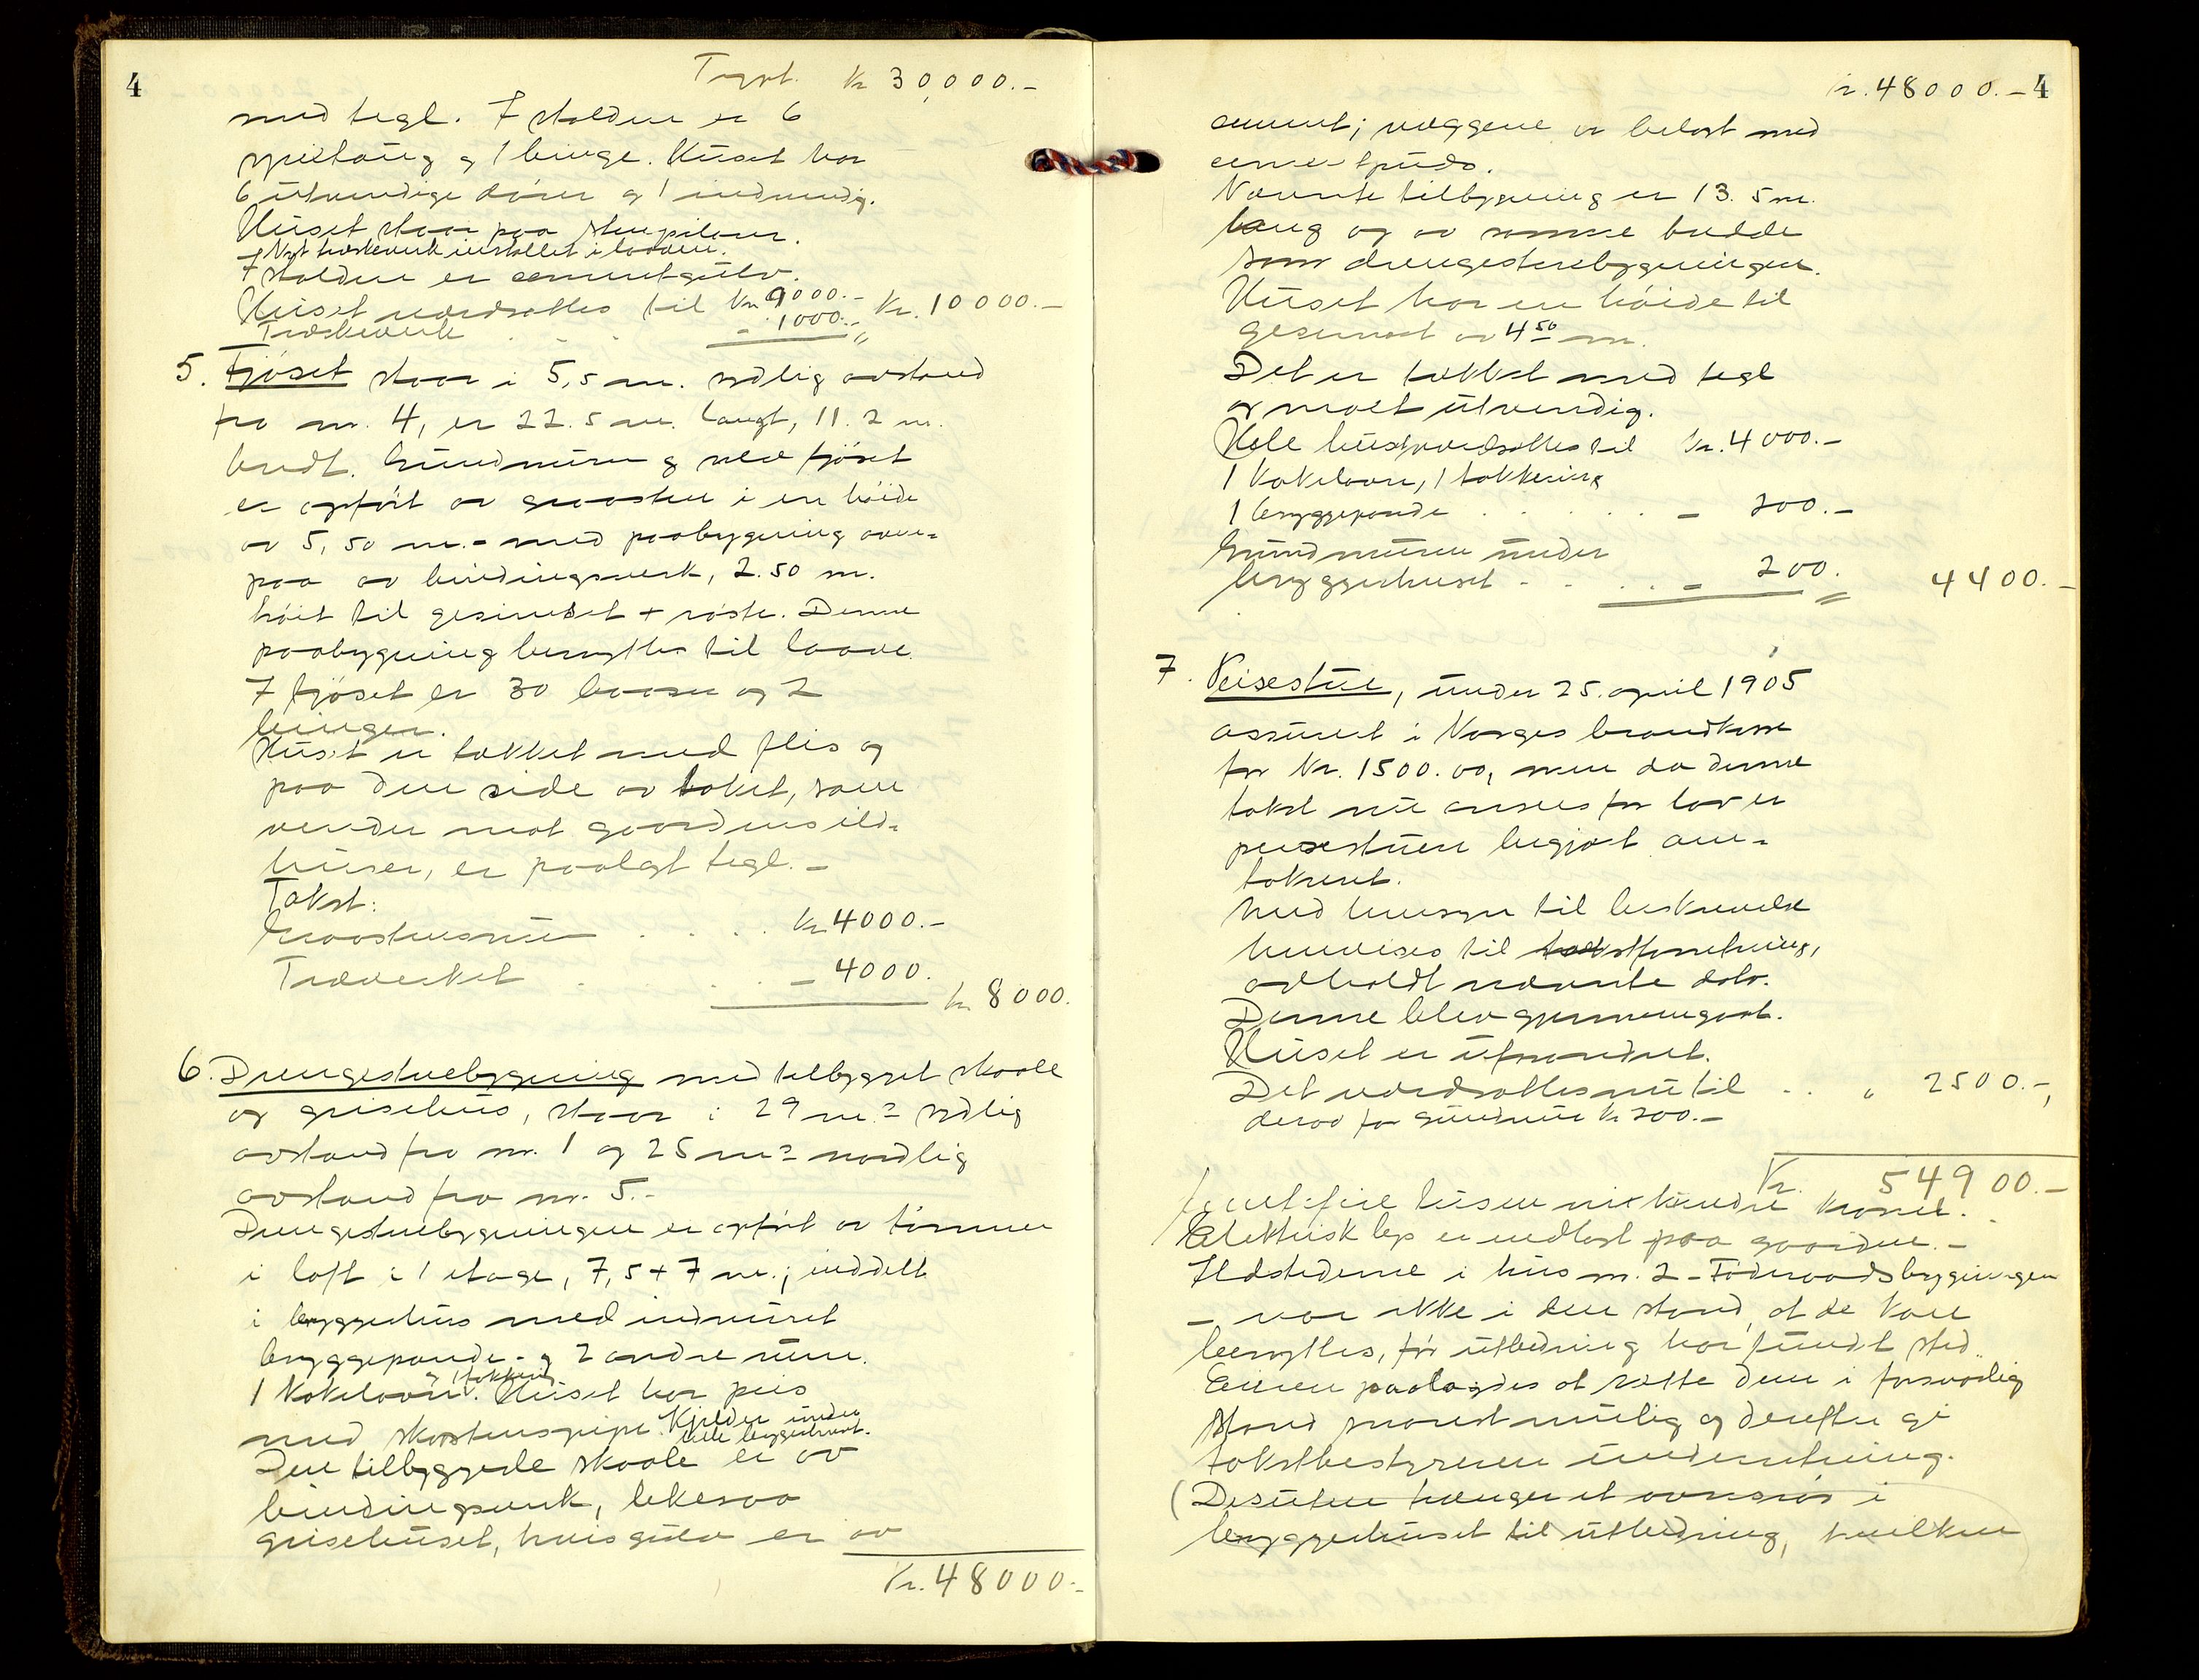 4
Trspt. Kr 30,000.-
med tegl. I stalden er 6
spiltaug og 1 binge. Huset har
6 utvendige dører og 1 indvendig.
Huset staar paa stenpilarer.
Nyt træskeverk installet i laaven.
I stalden er cementgulv.
Huset værdsættes til Kr 9000.- Kr. 10000.-
Træskeverk . . . - 1000.-
5. Fjøset staar i 5,5 m. sydlig avstand
fra nr. 4, er 22.5 m. langt, 11.2 m.
bredt. Grundmuren og selve fjøset
er opført av graasten i en høide
av 5,50 m. - med paabygning oven-
paa av bindingsverk, 2.50 m.
høit til gesimset + røste. Denne
paabygning benyttes til laave.
I fjøset er 30 baaser og 2
binger.
Huset er tækket med flis og
paa den side av taket, som
vender mot gaardens ild-
huser, er paalagt tegl. -
Takst:
Graastensmur . . . . Kr 4000.-
Træverket . . . - 4000.
Kr 8000.
6. Drengestuebygning med tilbygget skaale
og grisehus, staar i 29 m.s sydlig
avstand fra nr. 1 og 25 m.s nordlig
avstand fra nr. 5.-
Drengestuebygningen er opført av tømmer
i laft i 1 etage, 7,5 + 7 m.; inddelt
i bryggerhus med indmuret
bryggepande - og 2 andre rum.
og 1 takkering
1 Kakelovn. Huset har peis
med skorstenspipe. Kjelder under
hele bryggerhuset.
Den tilbyggede skaale er av
bindingsverk, likesaa
grisehuset, hvis gulv er av
Kr. 48000.-
Kr. 48000.- 4
cement; væggene er belagt med
cementpuds.
Nævnte tilbygning er 13.5 m.
lang og av samme bredde
som drengestuebygningen.
Huset har en høide til
gesimset av 4.50 m.
Det er tækket med tegl
og malt utvendig.
Hele huset værdsættes til Kr. 4000.-
1 Kakelovn, 1 takkering
1 bryggepande . . . . . - 200.-
Grundmuren under
bryggerhuset - . . . - 200. 4400.-
7. Peisestue, under 25. april 1905
assurert i Norges brandkasse
for Kr. 1500.00, men da denne
takst nu ansees for lav er
peisestuen begjært om-
taksert.
Med hensyn til beskrivelse
henvises til takstforretning,
avholdt nævnte dato.
Denne blev gjennemgaat.
Huset er uforandret.
Det værdsættes nu til . . " 2500.-,
derav for grundmur Kr 200.-
Kr. 54900.-
femtifire tusen nihundre kroner.
Elektrisk lys er indlagt paa gaarden. -
Ildstederne i hus nr. 2 - Føderaadsbygningen
- var ikke i den stand, at de kan
benyttes, før utbedring har fundet sted.
Eieren paalægdes at sætte dem i forsvarlig
stand snarest mulig og derefter gi
takstbestyreren underretning.
(Desuten trænger et ovnsrør i
bryggerhuset til utbedring, hvilken